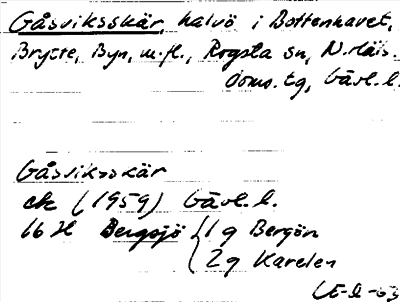 Gåsviksskär, halvö i Bottenhavet,
Brytte, Byn, m.fl., Rogsta sn, N. Häls.
doms. tg, Gävl. l.
Gåsviksskär
ek (1959) Gävl. l.
16 H Bergsjö 1 g Bergön
2 g Karelen